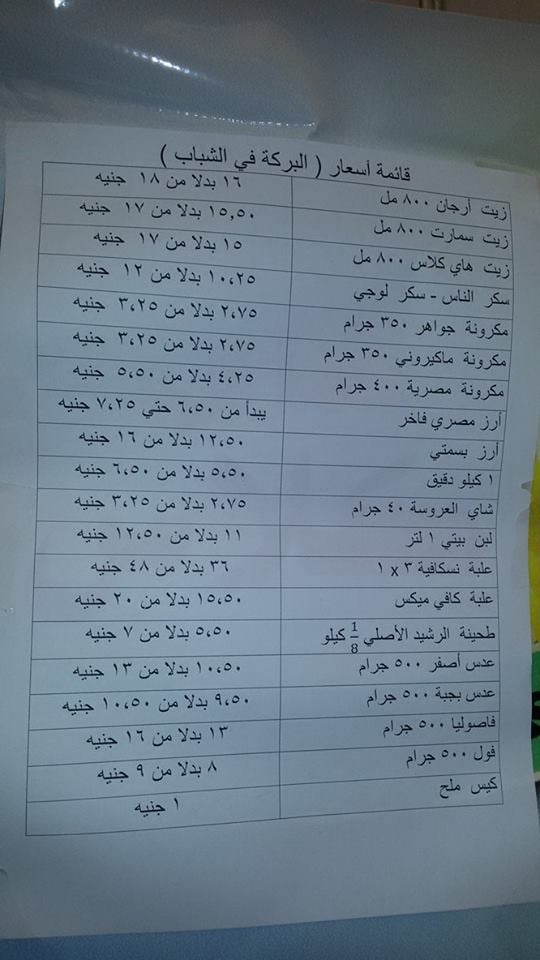 قائمة أسعار ( البركة في الشباب )
زيت أرجان ٨٠٠ مل ١٦ بدلا من ١٨ جنيه
زيت سمارت ٨٠٠ مل ١٥,٥٠ بدلا من ١٧ جنيه
زيت هاي كلاس ٨٠٠ مل ١٥ بدلا من ١٧ جنيه
سكر الناس - سكر لوجي ١٠،٢٥ بدلا من ١٢ جنيه
مكرونة جواهر ٣٥٠ جرام ٢،٧٥ بدلا من ٣،٢٥ جنيه
مكرونة ماكيروني ٣٥٠ جرام ٢،٧٥ بدلا من ٣،٢٥ جنيه
مكرونة مصرية ٤٠٠ جرام ٤،٢٥ بدلا من ٥،٥٠ جنيه
أرز مصري فاخر يبدأ من ٦،٥٠ حتي ٧،٢٥ جنيه
أرز بسمتي ١٢،٥٠ بدلا من ١٦ جنيه
١ كيلو دقيق ٥،٥٠ بدلا من ٦،٥٠ جنيه
شاي العروسة ٤٠ جرام ٢،٧٥ بدلا من ٣،٢٥ جنيه
لبن بيتي ١ لتر ١١ بدلا من ١٢،٥٠ جنيه
علبة نسكافية ٣ x ١ ٣٦ بدلا من ٤٨ جنيه
علبة كافي ميكس ١٥،٥٠ بدلا من ٢٠ جنيه
طحينة الرشيد الأصلي 1/8 كيلو ٥،٥٠ بدلا من ٧ جنيه
عدس أصفر ٥٠٠ جرام ١٠،٥٠ بدلا من ١٣ جنيه
عدس بجبة ٥٠٠ جرام ٩،٥٠ بدلا من ١٠،٥٠ جنيه
فاصوليا ٥٠٠ جرام ١٣ بدلا من ١٦ جنيه
فول ٥٠٠ جرام ٨ بدلا من ٩ جنيه
كيس ملح ١ جنيه